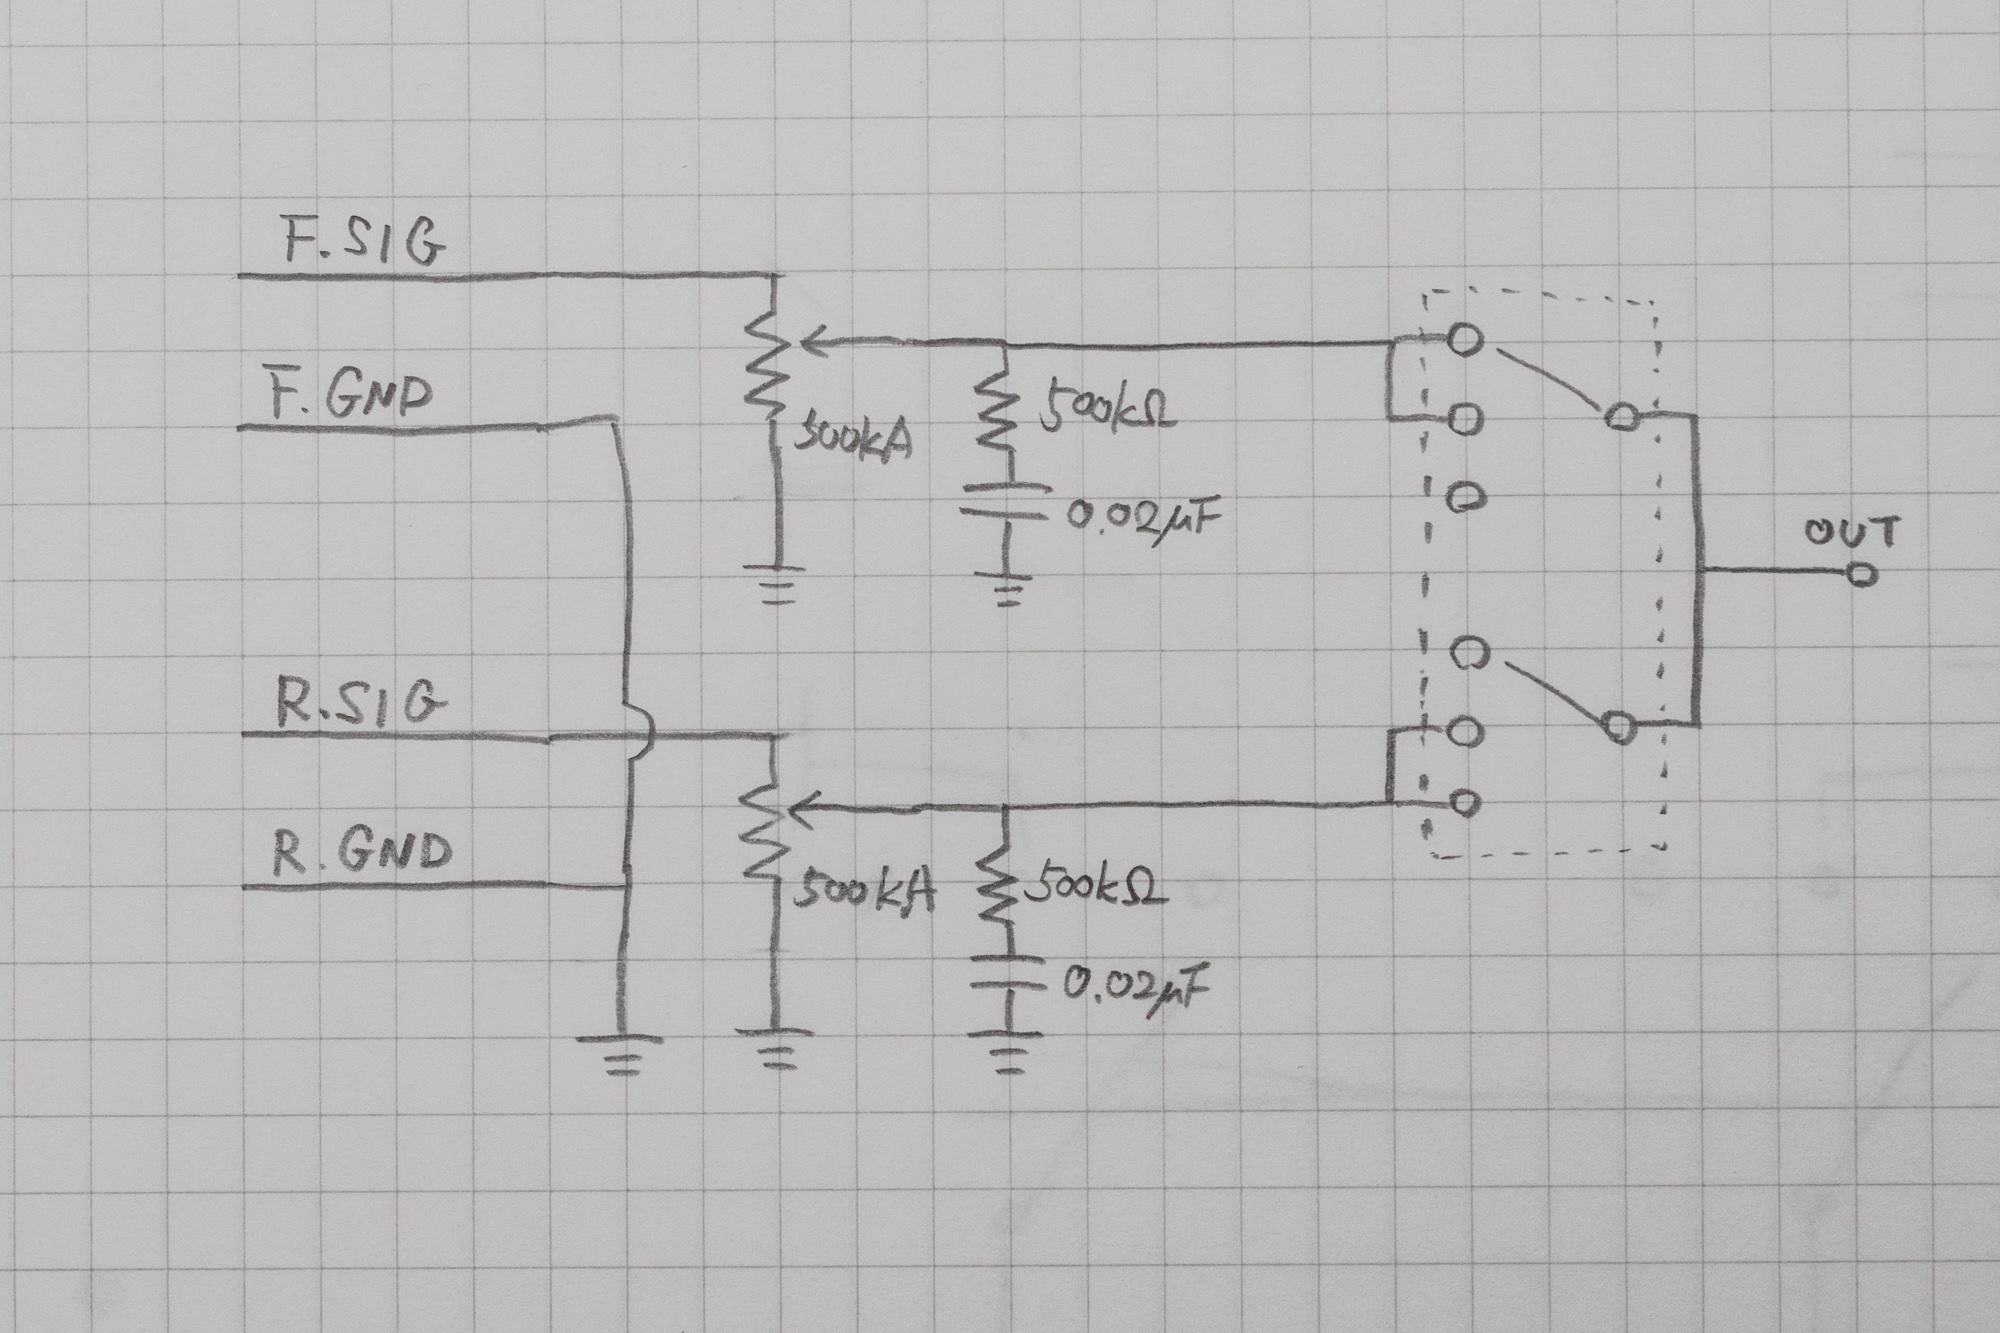 F.SIG
F.GND
500kA
500kΩ
0.02μF
OUT
R.SIG
R.GND
500kA
500kΩ
0.02μF